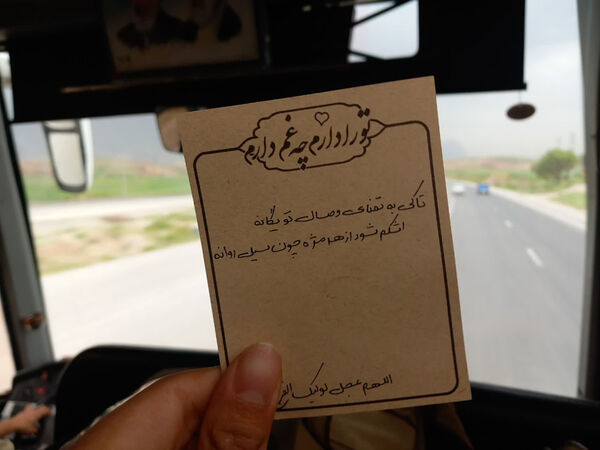 تو را دارم چه غم دارم
تاکی به تمنای وصال تو یگانه
اشکم شود از هر مژه چون سیل روانه
اللهم عجل لولیک الفر